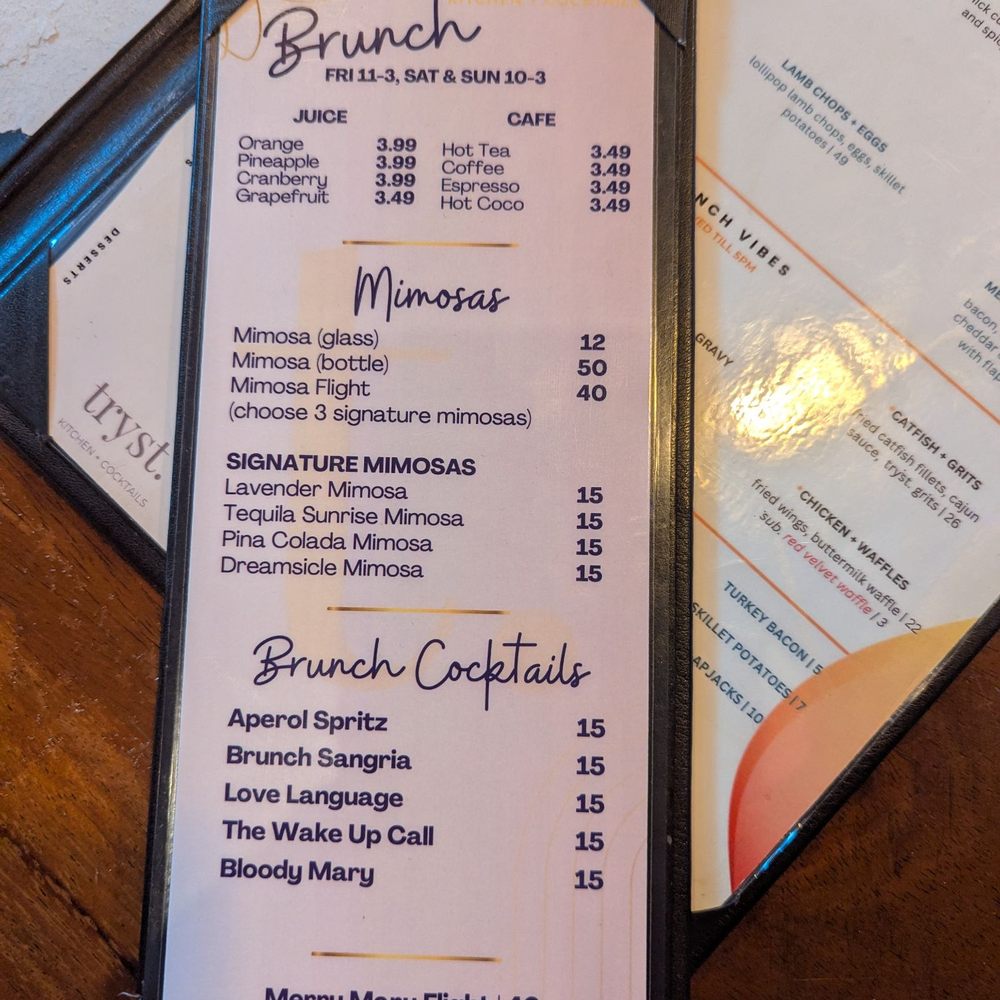 KITCHEN + COCKTAILS
Brunch
FRI 11-3, SAT & SUN 10-3
JUICE
Orange 3.99
Pineapple 3.99
Cranberry 3.99
Grapefruit 3.49
CAFE
Hot Tea 3.49
Coffee 3.49
Espresso 3.49
Hot Coco 3.49
Mimosas
Mimosa (glass) 12
Mimosa (bottle) 50
Mimosa Flight 40
(choose 3 signature mimosas)
SIGNATURE MIMOSAS
Lavender Mimosa 15
Tequila Sunrise Mimosa 15
Pina Colada Mimosa 15
Dreamsicle Mimosa 15
Brunch Cocktails
Aperol Spritz 15
Brunch Sangria 15
Love Language 15
The Wake Up Call 15
Bloody Mary 15
DESSERTS
tryst.
KITCHEN + COCKTAILS
LAMB CHOPS + EGGS
lollipop lamb chops, eggs, skillet
potatoes | 49
NCH VIBES
ED TILL 5PM
GRAVY
bacon,
cheddar
with
*CATFISH + GRITS
fried catfish fillets, cajun
sauce, tryst. grits | 26
*CHICKEN + WAFFLES
fried wings, buttermilk waffle | 22
sub. red velvet waffle | 3
TURKEY BACON | 5
SKILLET POTATOES | 7
APJACKS | 10